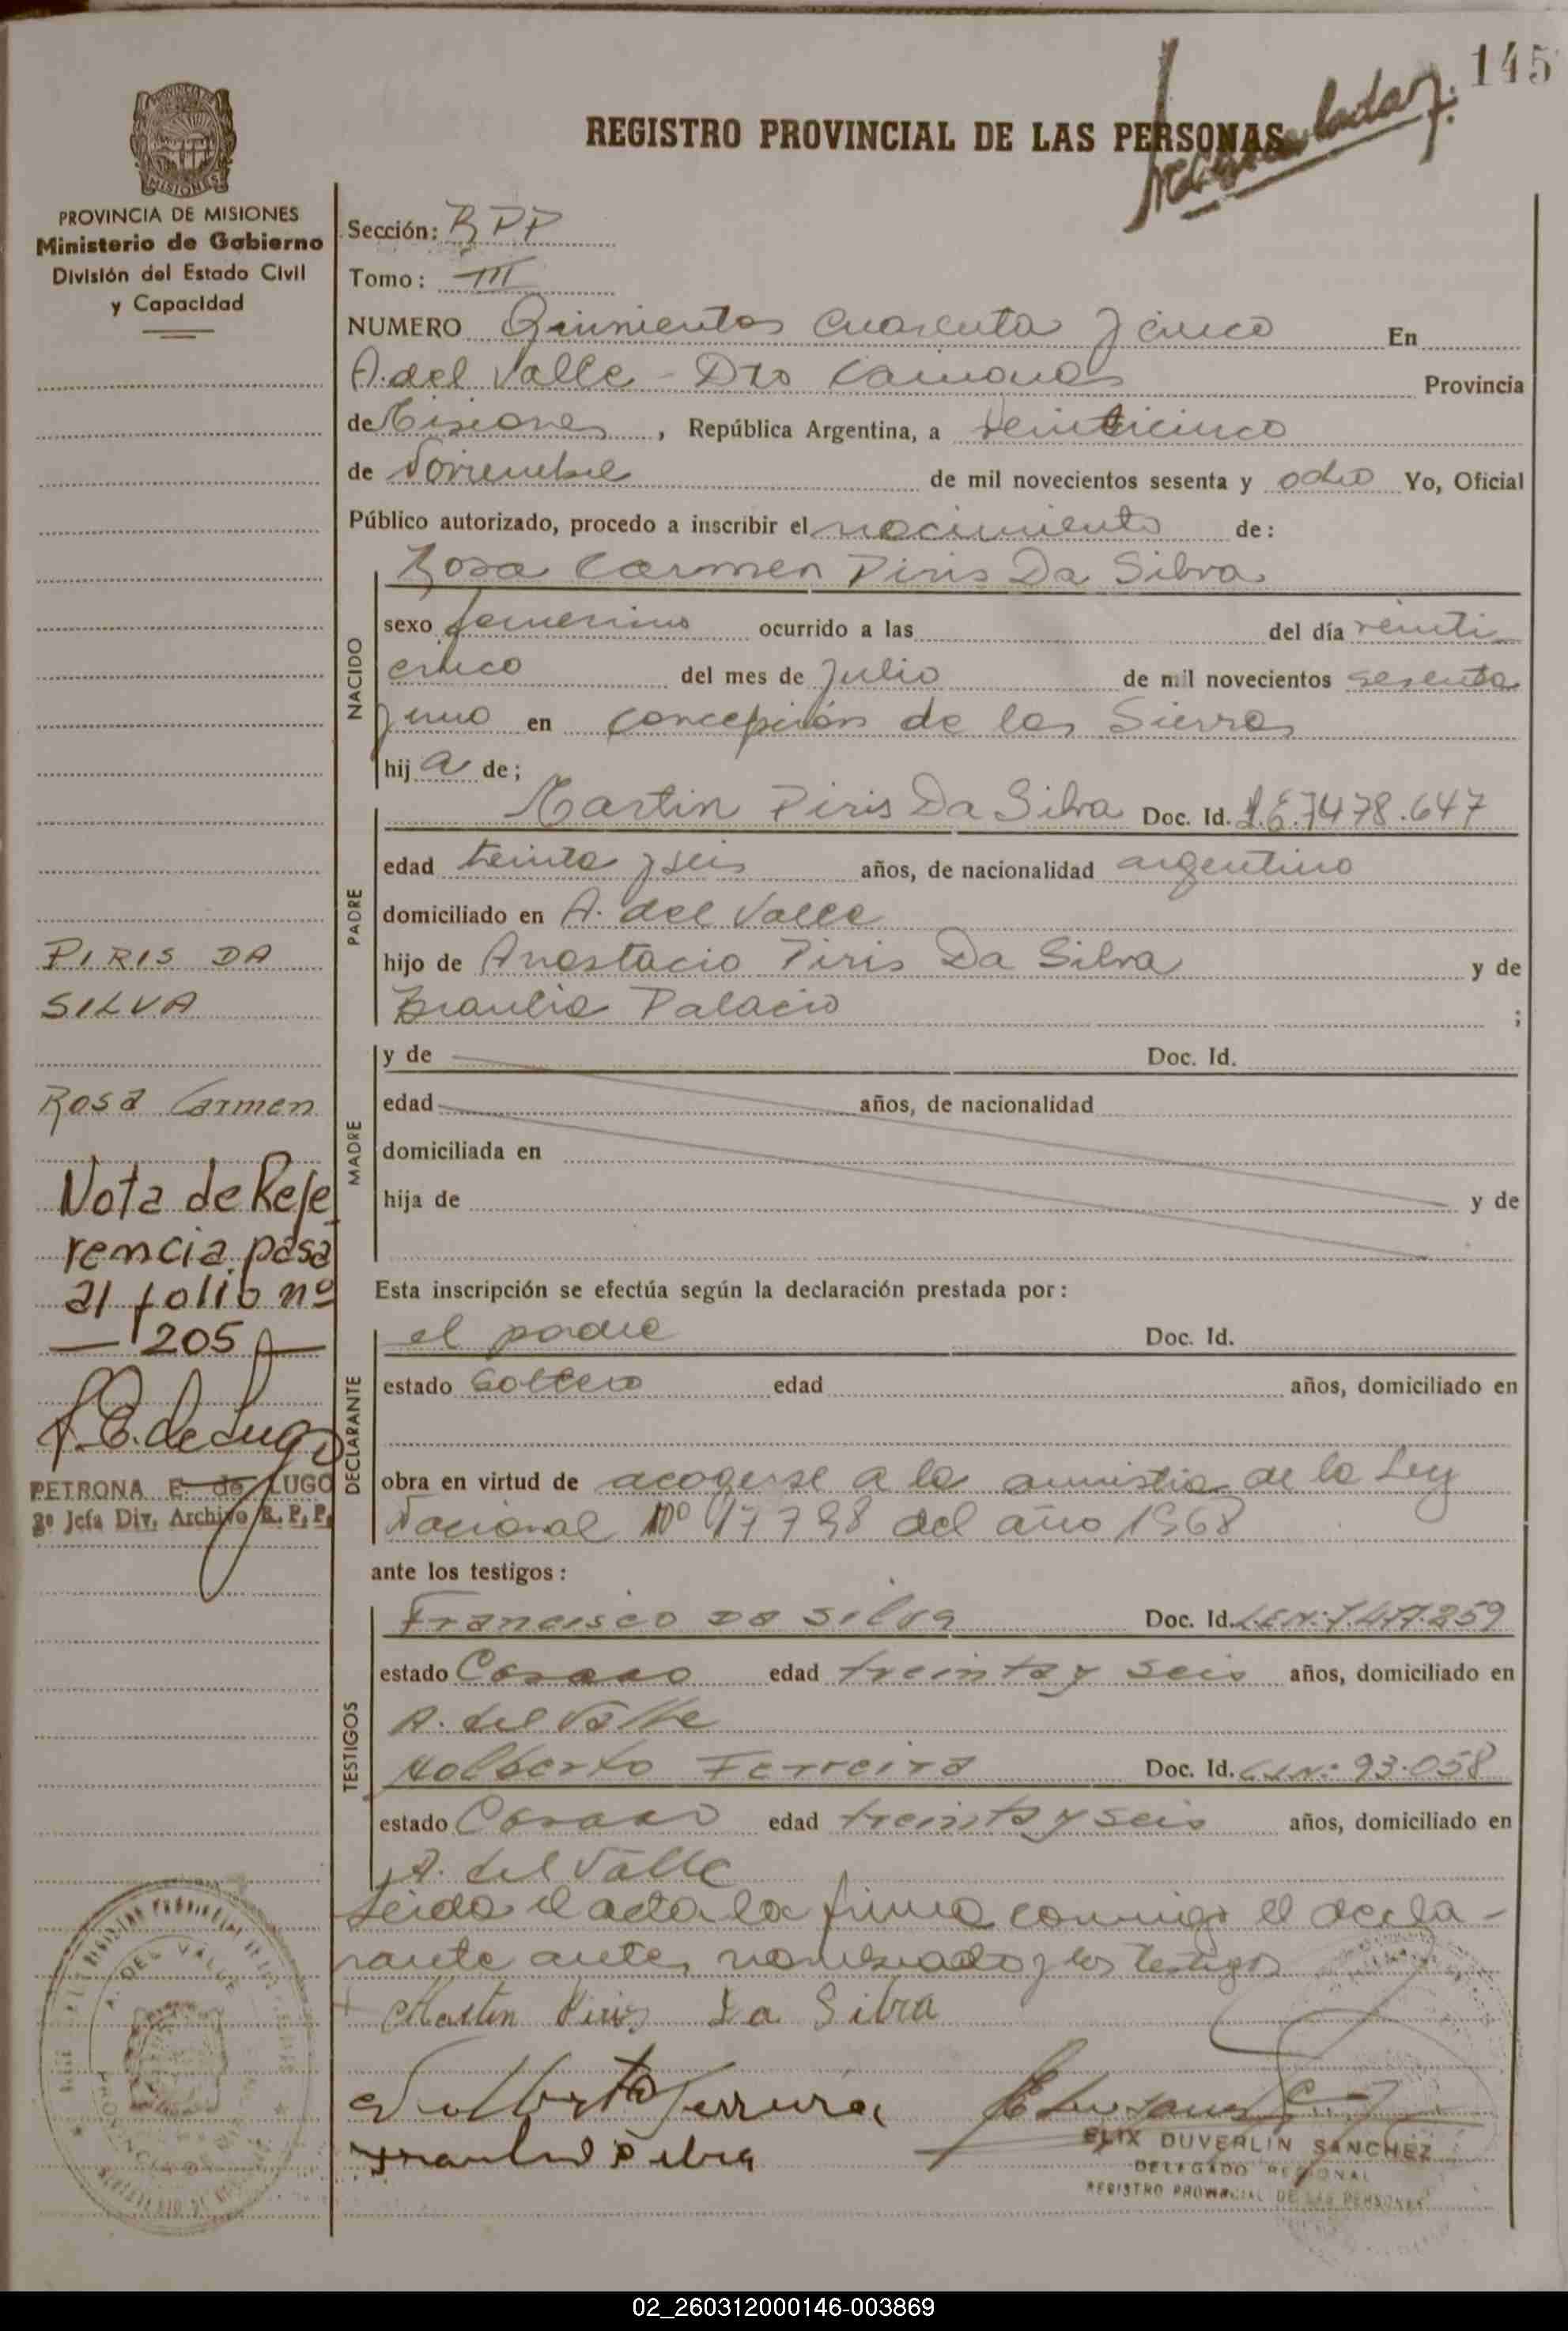 145
REGISTRO PROVINCIAL DE LAS PERSONAS
PROVINCIA DE MISIONES
Ministerio de Gobierno
División del Estado Civil
y Capacidad
Sección: RPP
Tomo: III
NUMERO Quinientos cuarenta y cinco En
A. del Valle - Dto Cainguas Provincia
de Misiones, República Argentina, a veinticinco
de Noviembre de mil novecientos sesenta y ocho Yo, Oficial
Público autorizado, procedo a inscribir el nacimiento de:
Rosa Carmen Piris Da Silva
NACIDO
sexo femenino ocurrido a las del día veinti
cinco del mes de Julio de mil novecientos sesenta
y uno en Concepción de las Sierras
hija de;
Martin Piris Da Silva Doc. Id. L.E.7478.647
PADRE
edad treinta y seis años, de nacionalidad argentino
domiciliado en A. del Valle
hijo de Anastacio Piris Da Silva y de
Braulia Palacio ;
PIRIS DA
SILVA
Rosa Carmen
Nota de Refe
rencia pasa
al folio nº
205
PETRONA E. de LUGO
2º Jefa Div. Archivo R. P. P.
MADRE
y de Doc. Id.
edad años, de nacionalidad
domiciliada en
hija de y de
Esta inscripción se efectúa según la declaración prestada por:
DECLARANTE
el padre Doc. Id.
estado soltero edad años, domiciliado en
obra en virtud de acogerse a la amnistia de la Ley
Nacional Nº 17798 del año 1968
ante los testigos:
TESTIGOS
Francisco Da Silva Doc. Id. L.E.N: 7.477.259
estado Casado edad treinta y seis años, domiciliado en
A. del Valle
Nolberto Ferreira Doc. Id. 93.058
estado Casado edad treinta y seis años, domiciliado en
A. del Valle
Leida el acta la firma conmigo el decla-
rante antes nombrado y los testigos
Martin Piris Da Silva
Nolberto Ferreira
ELIX DUVERLIN SANCHEZ
DELEGADO REGIONAL
REGISTRO PROVINCIAL DE LAS PERSONAS
A. DEL VALLE
PROVINCIA DE MISIONES
02_260312000146-003869